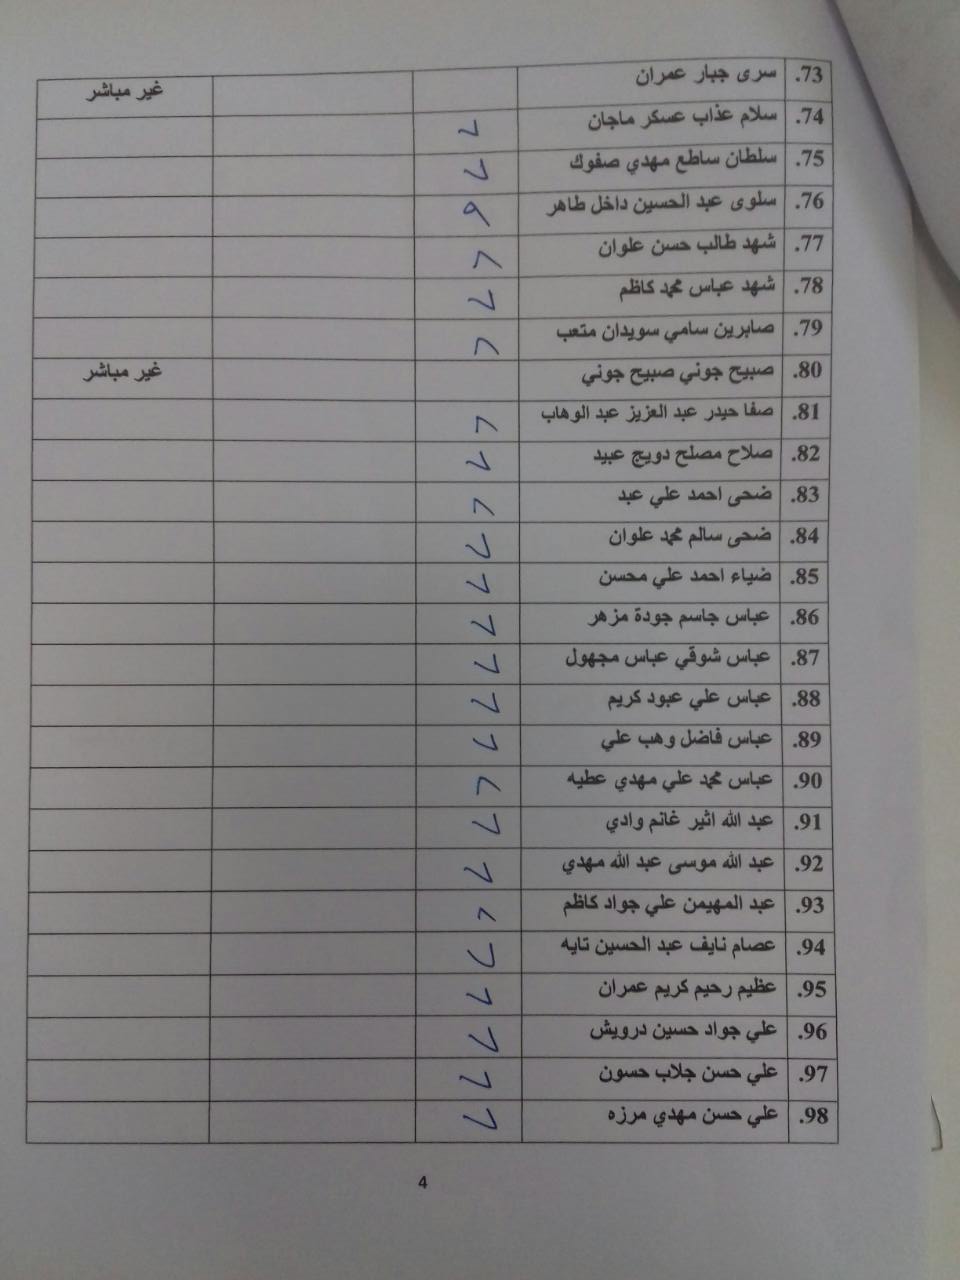 73. سرى جبار عمران غير مباشر
74. سلام عذاب عسكر ماجان ٧
75. سلطان ساطع مهدي صفوك ٧
76. سلوى عبد الحسين داخل طاهر ٩
77. شهد طالب حسن علوان ٦
78. شهد عباس محمد كاظم ٧
79. صابرين سامي سويدان متعب ٦
80. صبيح جوني صبيح جوني غير مباشر
81. صفا حيدر عبد العزيز عبد الوهاب ٦
82. صلاح مصلح دويج عبيد ٧
83. ضحى احمد علي عبد ٦
84. ضحى سالم محمد علوان ٧
85. ضياء احمد علي محسن ٧
86. عباس جاسم جودة مزهر ٧
87. عباس شوقي عباس مجهول ٧
88. عباس علي عبود كريم ٧
89. عباس فاضل وهب علي ٧
90. عباس محمد علي مهدي عطيه ٦
91. عبد الله اثير غانم وادي ٧
92. عبد الله موسى عبد الله مهدي ٧
93. عبد المهيمن علي جواد كاظم ٦
94. عصام نايف عبد الحسين تايه ٧
95. عظيم رحيم كريم عمران ٧
96. علي جواد حسين درويش ٧
97. علي حسن جلاب حسون ٧
98. علي حسن مهدي مرزه ٧
4